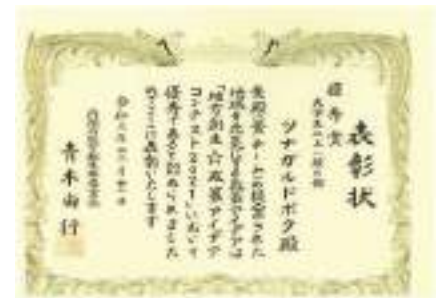 表彰状
優秀賞
大学生以上一般の部
ツナガルドボク殿
貴殿（貴チーム）の提案された
地域を元気にする政策アイデアは
「地方創生☆政策アイデア
コンテスト2021」において
優秀であると認められました
のでここに表彰いたします